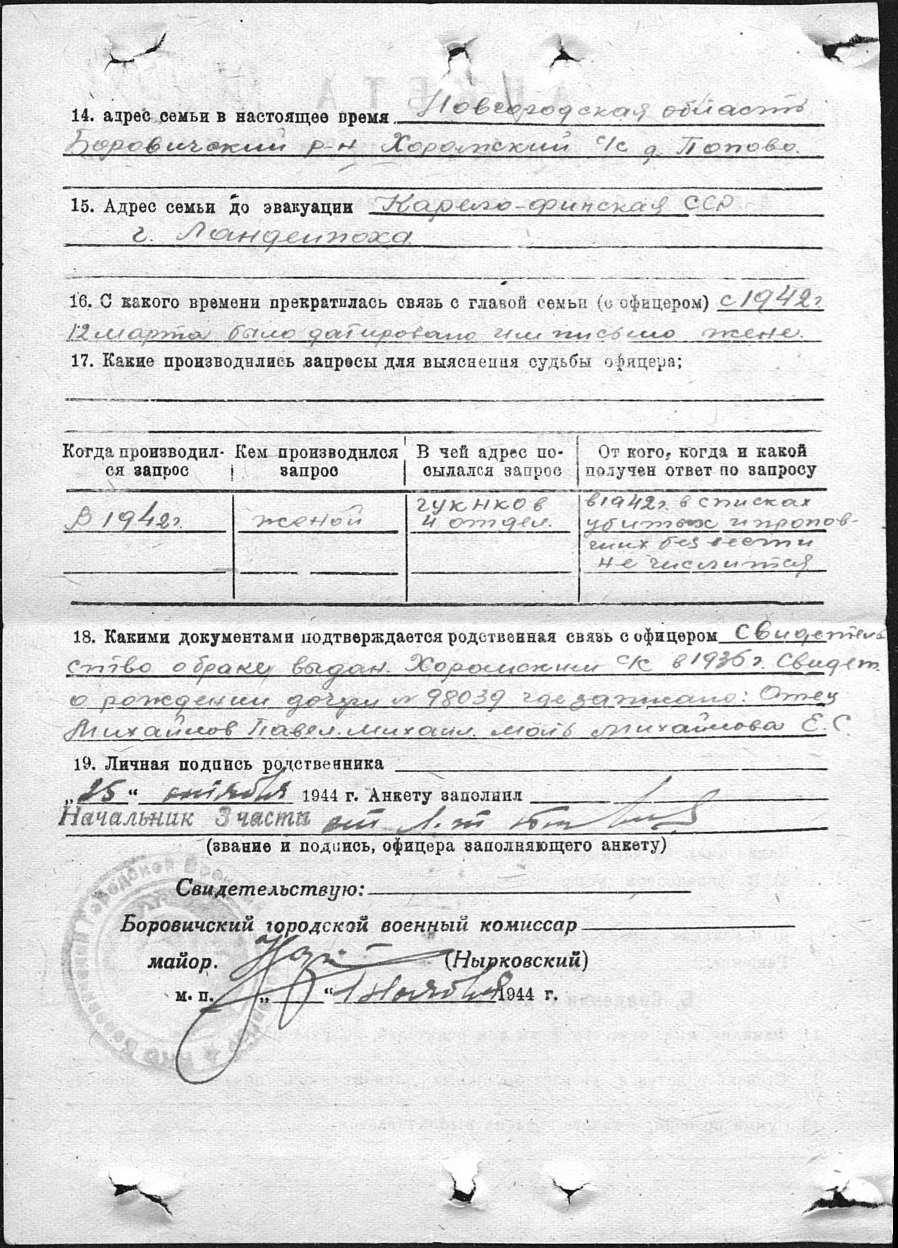 14. адрес семьи в настоящее время Новгородская область
Боровичский р-н Хоромский с/с д. Попово.
15. Адрес семьи до эвакуации Карело-финская ССР
г. Ланденпоха
16. С какого времени прекратилась связь с главой семьи (с офицером) с 1942 г
12 марта было датировано им письмо жене.
17. Какие производились запросы для выяснения судьбы офицера;
Когда производил- Кем производился В чей адрес по- От кого, когда и какой
ся запрос запрос сылался запрос получен ответ по запросу
В 1942 г. женой ГУКНКОВ в 1942 г. в списках
4 отдел. убитых и пропав-
ших без вести
не числится
18. Какими документами подтверждается родственная связь с офицером Свидетель
ство о браке, выдан. Хоромским с/с в 1936 г. Свидет.
о рождении дочери № 98039 где записано: Отец
Михайлов Павел. Михаил. мать Михайлова Е.С.
19. Личная подпись родственника
„25“ октября 1944 г. Анкету заполнил
Начальник 3 части ст. л-т
(звание и подпись, офицера заполняющего анкету)
Свидетельствую:
Боровичский городской военный комиссар
майор. (Нырковский)
м. п. „ “ 1 ноября 1944 г.